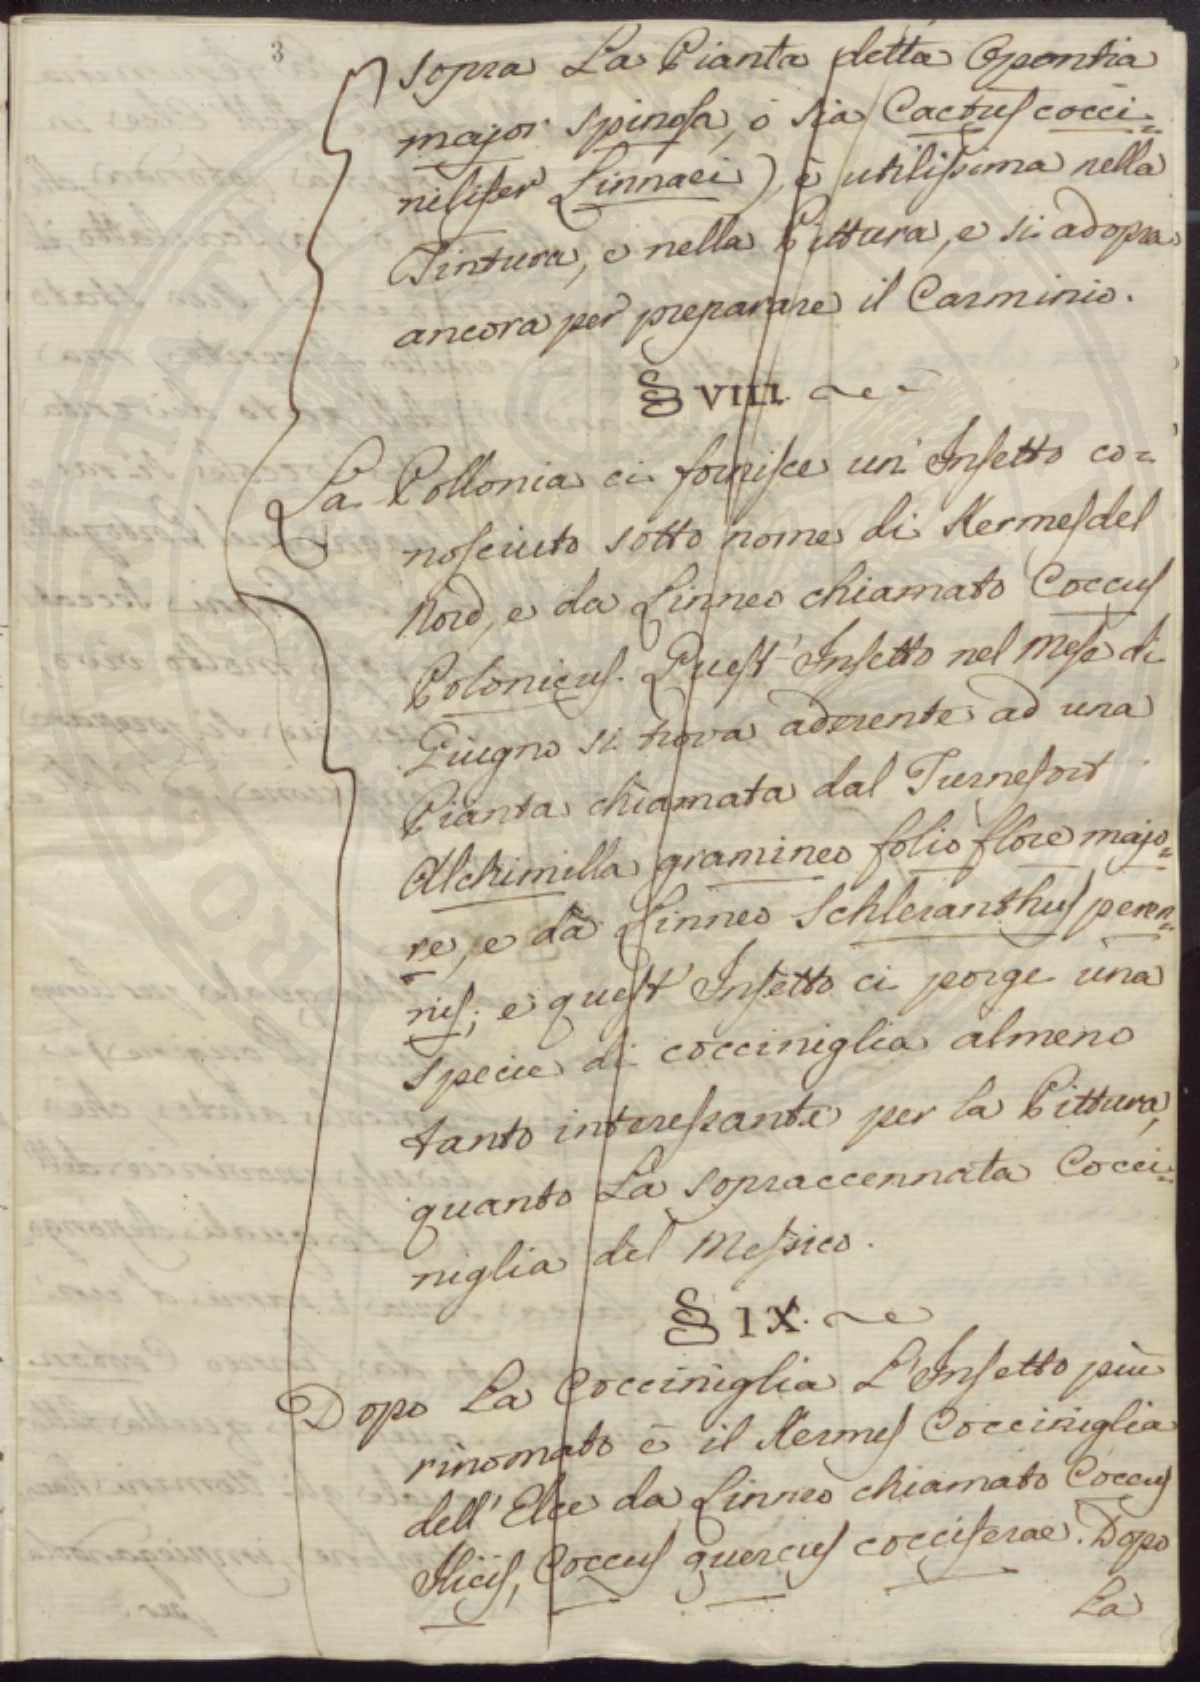 3
sopra La Pianta detta Opontia
major spinosa, ò sia Cactus cocci=
nilifer Linnaei) è utilissima nella
Tintura, e nella Pittura, e si adopra
ancora per preparare il Carminio.
§ VIII.
La Pollonia ci fornisce un' Insetto co=
nosciuto sotto nome di Kermes del
Nord, e da Linneo chiamato Coccus
Polonicus. Quest' Insetto nel Mese di
Giugno si trova aderente ad una
Pianta chiamata dal Turnefort
Alchimilla gramineo folio flore majo=
re, e da Linneo Schleranthus peren=
nis; e quest' Insetto ci porge una
specie di cocciniglia almeno
tanto interessante per la Pittura,
quanto La sopraccennata Cocci=
niglia del Messico.
§ IX.
Dopo La Cocciniglia L'Insetto più
rinomato è il Kermes Cocciniglia
dell' Elce da Linneo chiamato Coccus
Ilicis, Coccus quercus cocciferae. Dopo
La